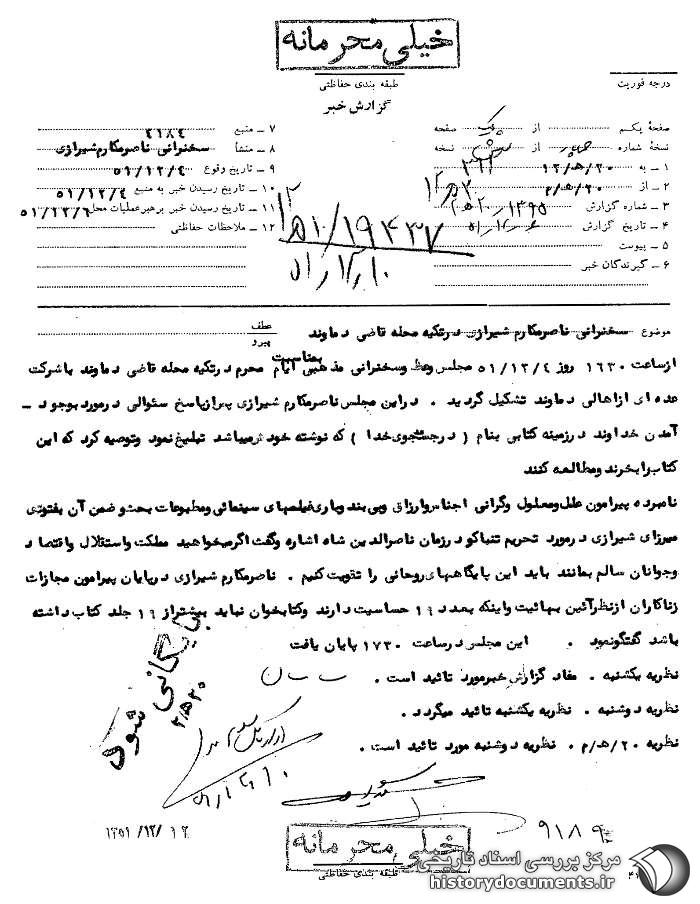 خیلی محرمانه
طبقه بندی حفاظتی
درجه فوریت
گزارش خبر
صفحهٔ یکم از یک صفحه
نسخهٔ شماره از نسخه
۱ ـ به ۱۲/ه‍/۲۰
۲ ـ از ۲/ه‍/۲۰
۳ ـ شماره گزارش
۴ ـ تاریخ گزارش
۵ ـ پیوست
۶ ـ گیرندگان خبر
۷ ـ منبع ۲۱۸۴
۸ ـ منشأ سخنرانی ناصرمکارم شیرازی
۹ ـ تاریخ وقوع ۵۱/۱۲/۴
۱۰ ـ تاریخ رسیدن خبر به منبع ۵۱/۱۲/۴
۱۱ ـ تاریخ رسیدن خبر برهبرعملیات محل ۵۱/۱۲/۶
۱۲ ـ ملاحظات حفاظتی
۱۹۴۳۷
۵۱/۱۲/۱۰
موضوع سخنرانی ناصرمکارم شیرازی درتکیه محله قاضی دماوند
عطف
پیرو
ازساعت ۱۶۳۰ روز ۵۱/۱۲/۴ مجلس وعظ وسخنرانی مذهبی بمناسبت ایام محرم درتکیه محله قاضی دماوند باشرکت
عده ای ازاهالی دماوند تشکیل گردید . دراین مجلس ناصرمکارم شیرازی پس ازپاسخ سئوالی درمورد بوجود ـ
آمدن خداوند درزمینه کتابی بنام ( درجستجوی خدا ) که نوشته خودش میباشد تبلیغ نمود وتوصیه کرد که این
کتاب رابخرند ومطالعه کنند
نامبرده پیرامون علل ومعلول وگرانی اجناس وارزاق وبی بند وباری فیلمهای سینمائی ومطبوعات بحث و ضمن آن بفتوتی
میرزای شیرازی درمورد تحریم تنباکو درزمان ناصرالدین شاه اشاره وگفت اگرمیخواهید مملکت واستقلال واقتصاد
وجوانان سالم بمانند باید این پایگاههای روحانی را تقویت کنیم . ناصرمکارم شیرازی درپایان پیرامون مجازات
زناکاران ازنظرآئین بهائیت واینکه بعدد ۱۹ حساسیت دارند وکتابخوان نباید بیشتراز ۱۹ جلد کتاب داشته
باشد گفتگونمود . این مجلس درساعت ۱۷۳۰ پایان یافت
نظریه یکشنبه . مفاد گزارش خبرمورد تائید است .
نظریه دوشنبه . نظریه یکشنبه تائید میگردد .
نظریه ۲۰/ه‍/م . نظریه دوشنبه مورد تائید است .
بایگانی شود
۱۳۵۱/۱۲/۱۲
۹۱۸۹
خیلی محرمانه
طبقه بندی حفاظتی
مرکز بررسی اسناد تاریخی
historydocuments.ir